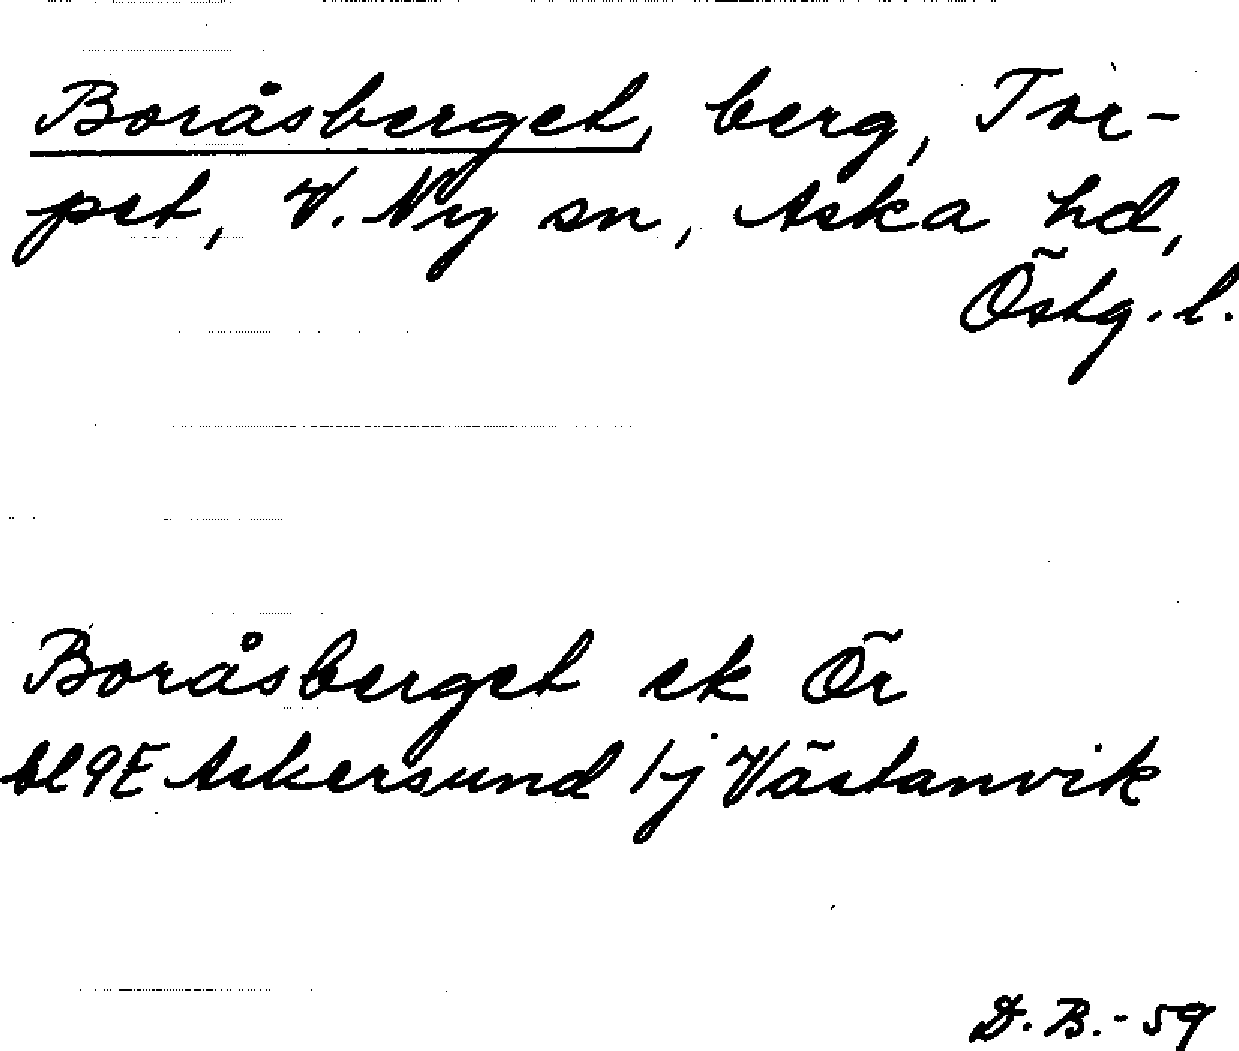 Boråsberget, berg, Tor-
pet, V. Ny sn, Aska hd,
Östg. l.
Boråsberget ek Ör
bl 9E Askersund 1j Västanvik
D. B. - 59